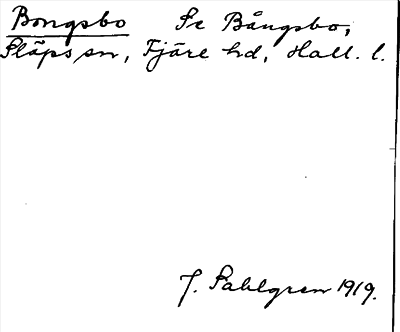 Bongsbo Se Bångsbo,
Släps sn, Fjäre hd, Hall. l.
J. Sahlgren 1919.